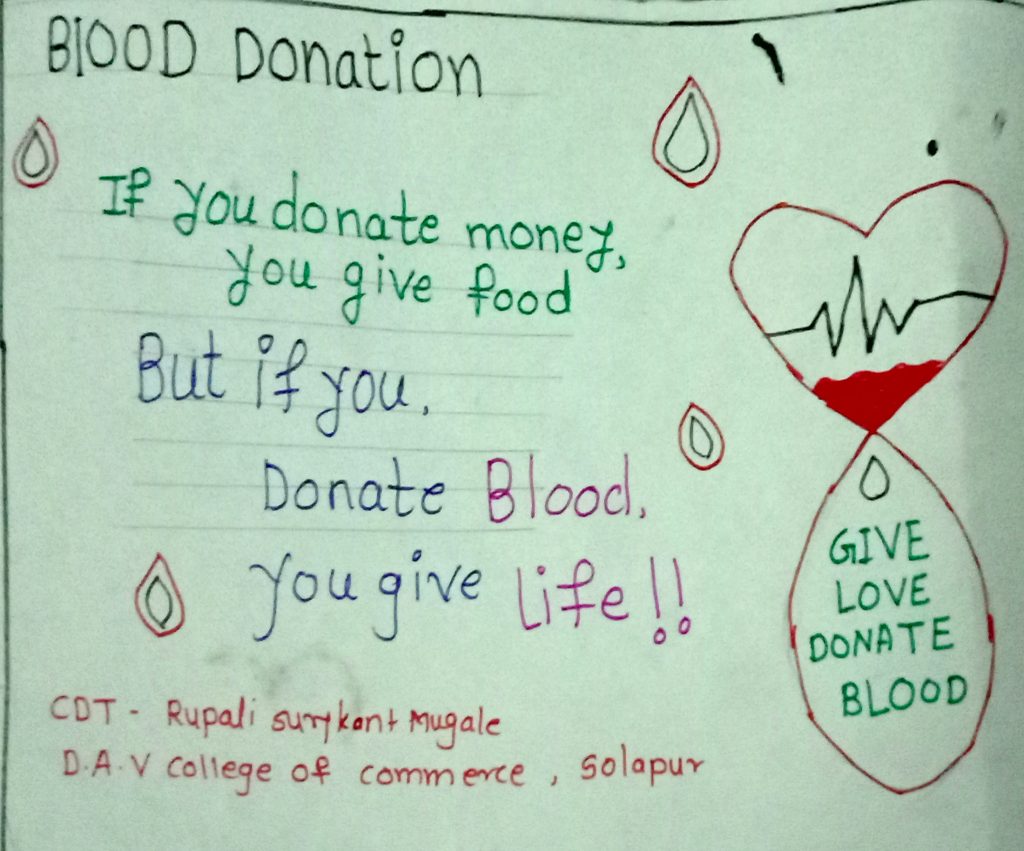 BlOOD Donation
If you donate money,
you give food
But if you,
Donate Blood,
you give life!!
GIVE
LOVE
DONATE
BLOOD
CDT - Rupali surykant Mugale
D.A.V college of commerce, solapur